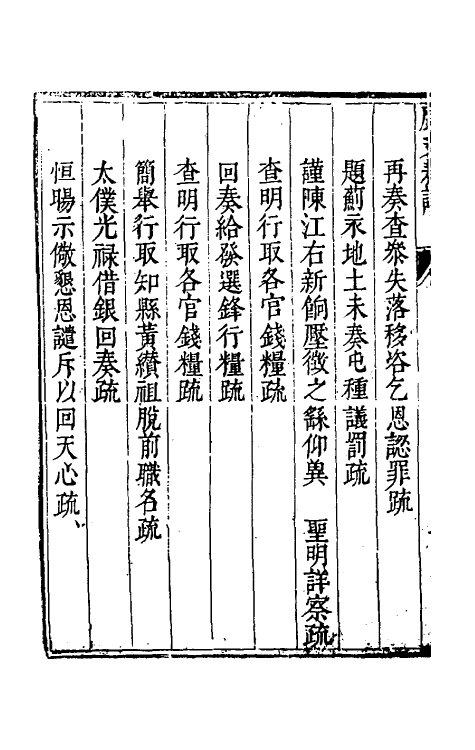 再奏查叅失落移咨乞恩認罪疏
題薊永地土未奏屯種議罰疏
謹陳江右新餉壓徵之繇仰兾 聖明詳察疏
查明行取各官錢糧疏
回奏給發選鋒行糧疏
查明行取各官錢糧疏
簡舉行取知縣黃纘祖脫前職名疏
太僕光祿借銀回奏疏
恒暘示儆懇恩譴斥以回天心疏、